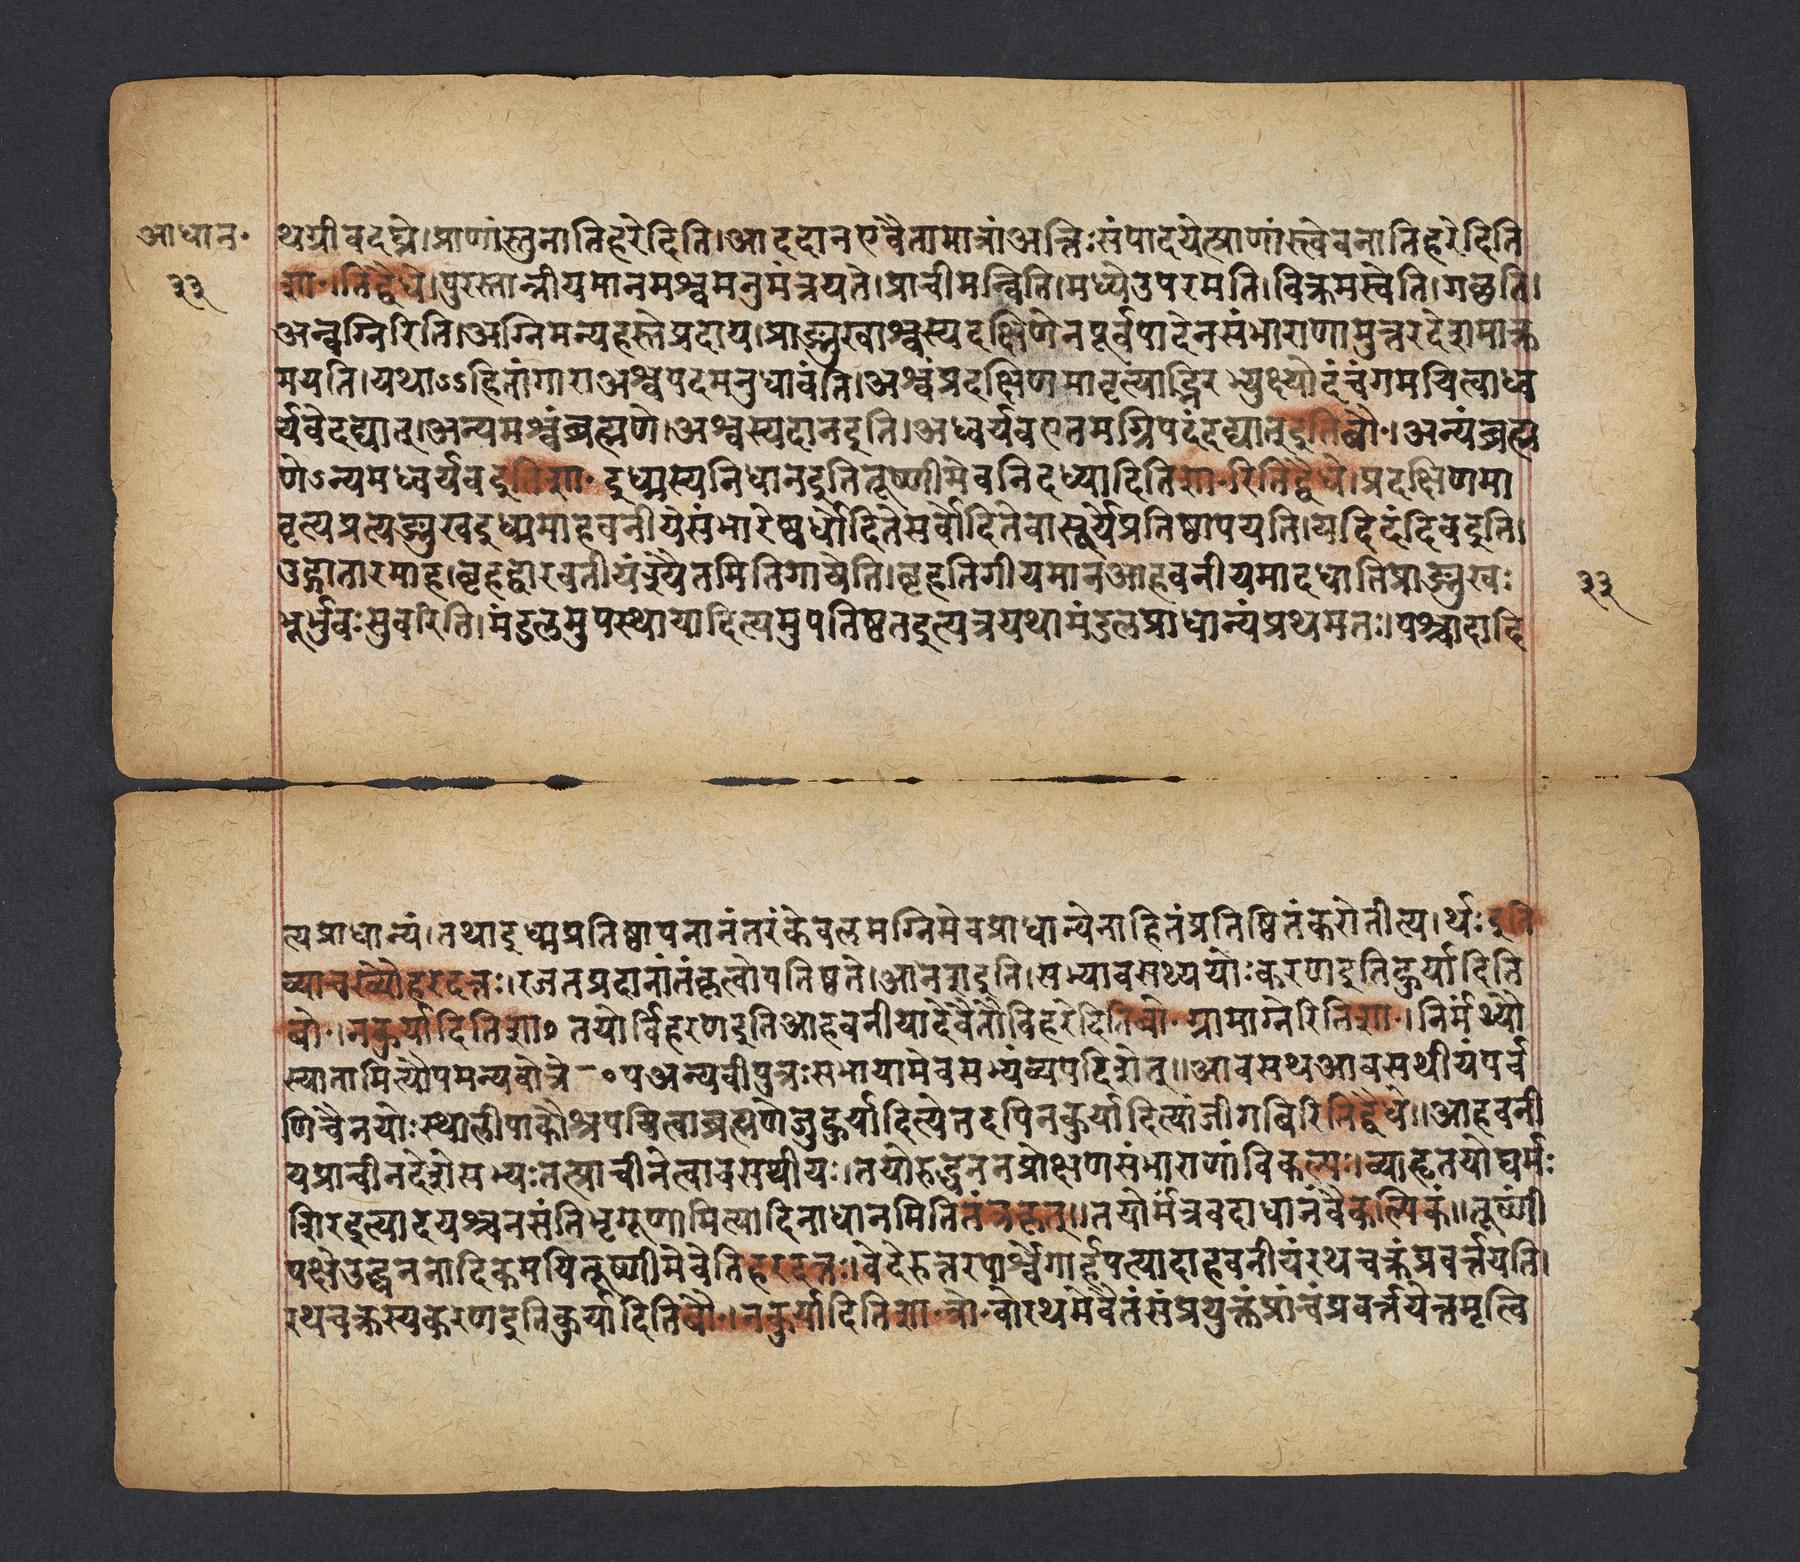 आधान॰
३३
थग्रीवदघ्ने।प्राणांस्तुनातिहरेदिति।आददानएवैतामात्रांअन्निःसंपादयेत्प्राणांस्त्वेवनातिहरेदिति
शा॰।तिद्वैधे।पुरस्तान्नीयमानमश्वमनुमंत्रयते।प्राचीमन्विति।मध्येउपरमति।विक्रमस्वेति।गछति।
अन्वग्निरिति।अग्निमन्यहस्तेप्रदाय।प्राङ्मुखाश्वस्यदक्षिणेनपूर्वपादेनसंभाराणामुत्तरदेशमाक्र
मयति।यथाऽऽहितांगाराअश्वपदमनुधावंति।अश्वंप्रदक्षिणमावृत्याद्भिरभ्युक्ष्योदंचंगमयित्वाध्व
र्यवेदद्यात्।अन्यमश्वंब्रह्मणे।अश्वस्यदानइति।अध्वर्यवएतमग्निपदंदद्यात्इतिबौ॰।अन्यंब्रह्म
णेऽन्यमध्वर्यवइतिशा॰इध्मस्यनिधानइतितूष्णीमेवनिदध्यादितिशा॰रितिद्वैधे।प्रदक्षिणमा
वृत्यप्रत्यङ्मुखइध्ममाहवनीयेसंभारेष्वर्धोदितेसर्वोदितेवासूर्येप्रतिष्ठापयति।यदिदंदिवइति।
उद्गातारमाह।बृहद्गोरवतीयंश्रैयैतमितिगायेति।बृहतिगीयमानआहवनीयमादधातिप्राङ्मुखः
भूर्भुवःसुवरिति।मंडलमुपस्थायादित्यमुपतिष्ठतइत्यत्रयथामंडलप्राधान्यंप्रथमतः।पश्चादादि
३३
त्यप्राधान्यं।तथाइध्मप्रतिष्ठापनानंतरंकेवलमग्निमेवप्राधान्येनाहितंप्रतिष्ठितंकरोतीत्य।र्थःइति
व्याचख्यौहरदत्तः।रजतप्रदानांतंकृत्वोपतिष्ठते।आनशइति।सभ्यावसथ्ययोःकरणइतिकुर्यादिति
बौ॰।नकुर्यादितिशा॰तयोर्विहरणइतिआहवनीयादेवैतौविहरेदितिबौ॰ग्रामाग्नेरितिशा॰।निर्मंथ्यौ
स्यातामित्यौपमन्यवोत्रे-॰पअन्यवीपुत्रःसभायामेवसभ्यंव्यपदिशेत्॥आवसथआवसथीयंपर्व
णिचैनयोःस्थालीपाकौश्रपयित्वाब्रह्मणेजुकुर्यादित्येतदपिनकुर्यादित्यांजीगविरितिद्वैधे॥आहवनी
यप्राचीनदेशेसभ्यःतत्प्राचीनेत्वावसथीयः।तयोरुद्धननप्रोक्षणसंभाराणांविकल्पः।व्याहृतयोघर्मः
शिरइत्यादयश्चनसंतिभृगूणामित्यादिनाधानमितितंत्रकृत्॥तयोर्मंत्रवदाधानंवैकल्पिकं॥तूष्णीं
पक्षेउद्धननादिकमपितूष्णीमेवेतिहरदत्तः।वेदेरुत्तरपार्श्वेगार्हपत्यादाहवनीयंरथचक्रंप्रवर्त्तयति।
रथचक्रस्यकरणइतिकुर्यादितिबौ॰।नकुर्यादितिशा॰त्रो॰वोरथमेवैतंसंप्रयुक्तंप्रांचंप्रवर्त्तयेत्तमृत्वि